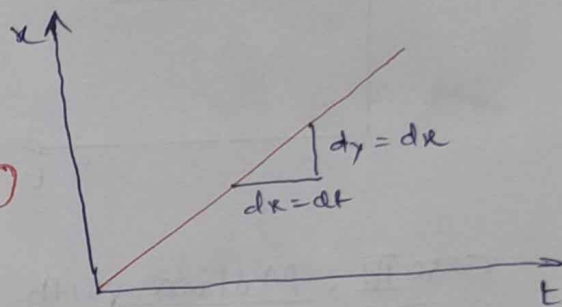 x
dy = dx
dx = dt
t